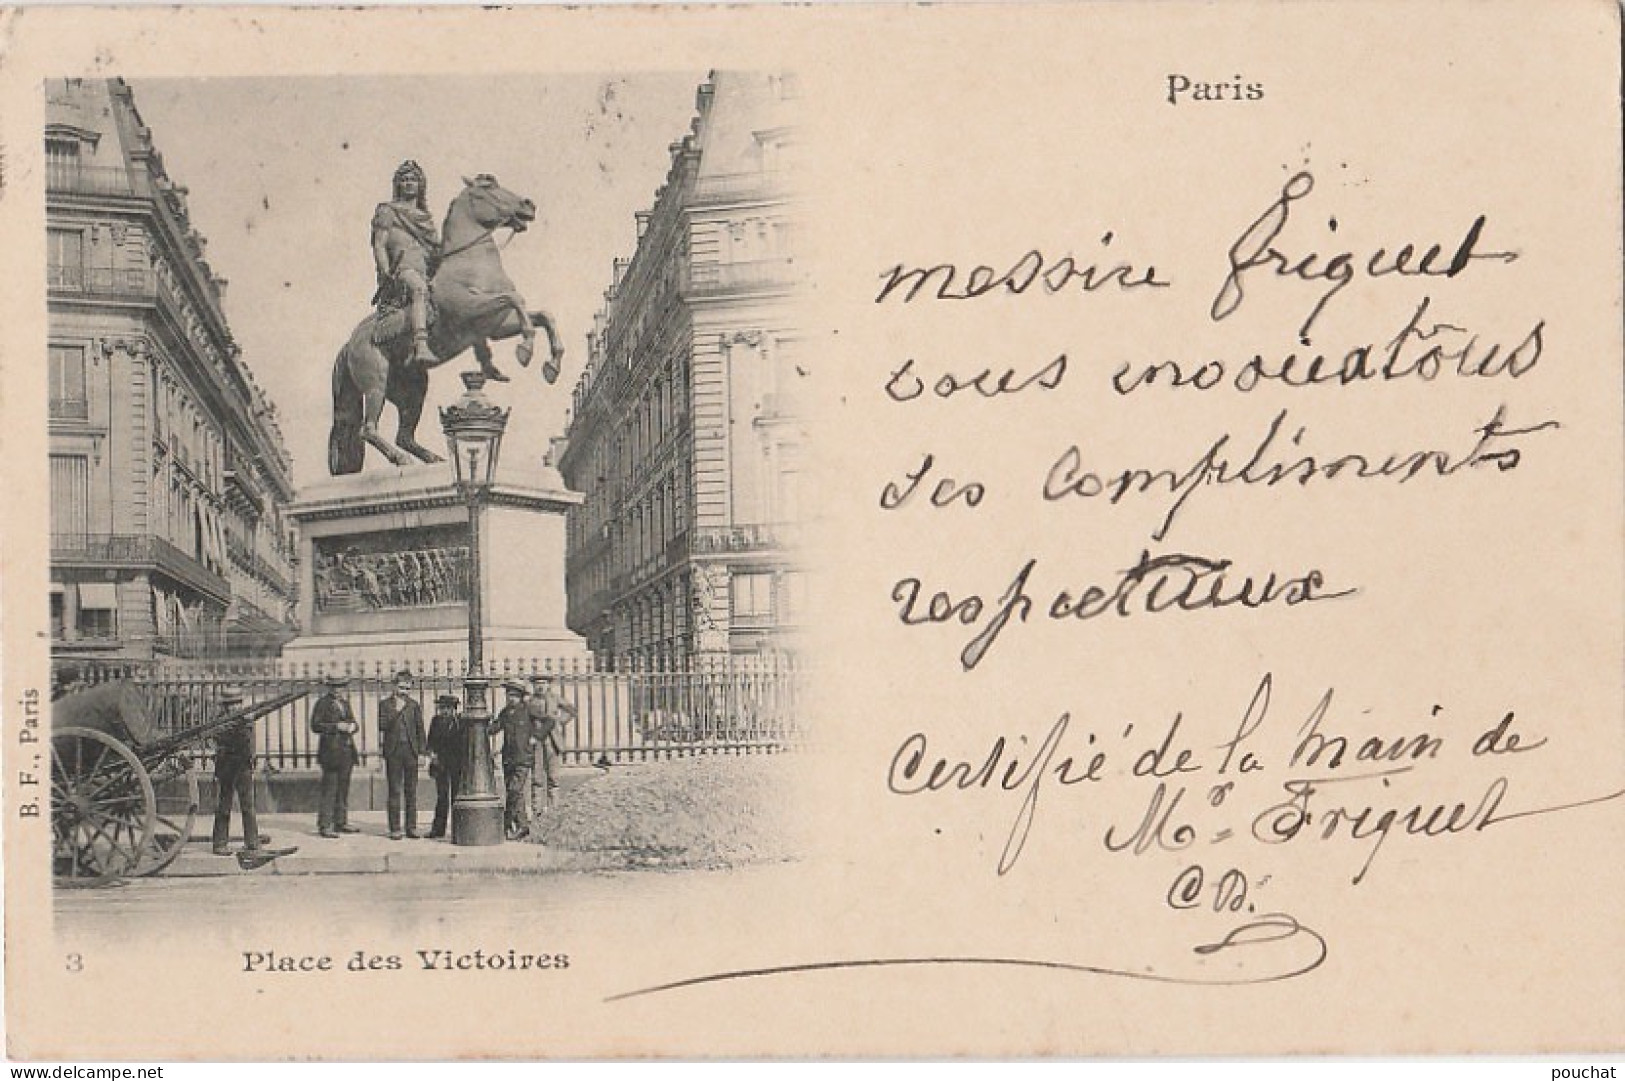 Paris
messire Friquet
vous envoie a tous
ses compliments
respectueux
Certifié de la main de
Mr = Friquet
CD.
B. F., Paris
3 Place des Victoires
delcampe.net
pouchat